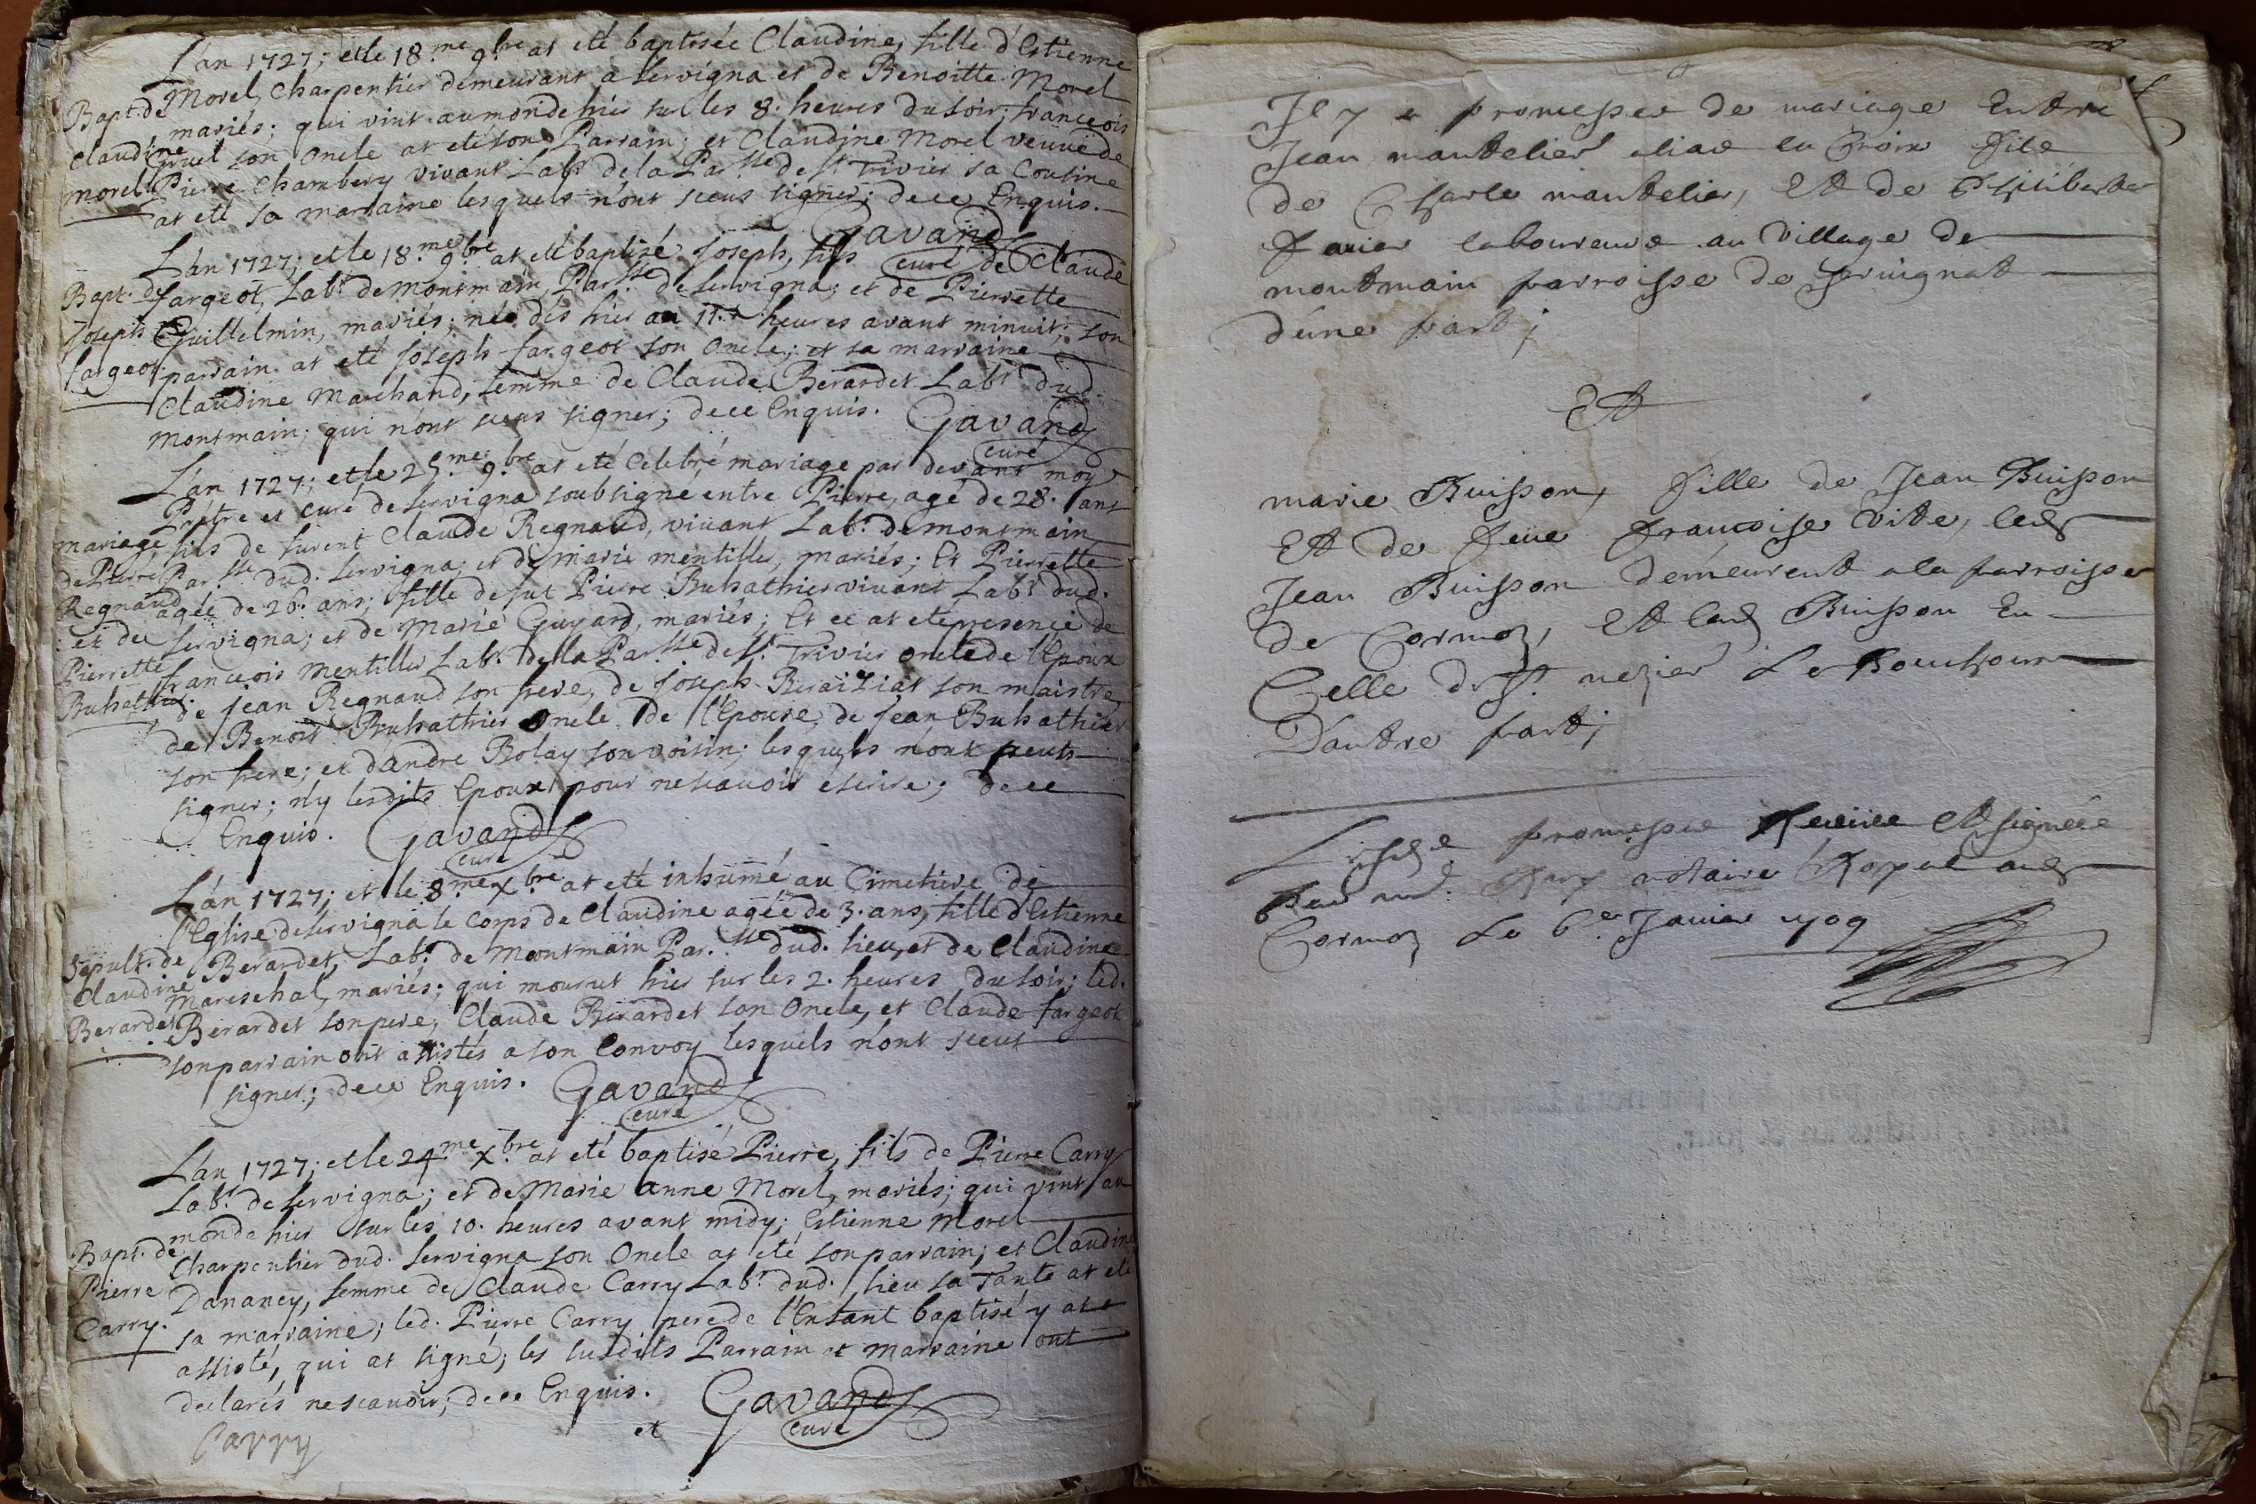 L'an 1727; et le 18.me 9.bre at eté baptisée Claudine, fille d'Estienne
Morel, Charpentier demeurant a Servigna et de Benoitte Morel
mariés; qui vint au monde hier sur les 8. heures du soir; francois
son Oncle at eté son Parrain; et Claudine Morel veuve de
Pierre Chambery vivant Labr. de la Par.sse de St. Trivier sa Cousine
at eté sa marraine lesquels n'ont sceus signer; de ce Enquis.
Bapt. de
Claudine
Morel
Gavand
curé
L'an 1727; et le 18.me 9.bre at eté baptisé Joseph, fils de Claude
fargeot, Labr. de montmain, Par.sse de Servigna; et de Pierrette
Guillelmin, mariés; née dès hier au 11.e heures avant minuit; son
parrain at eté Joseph fargeot son Oncle; et sa marraine
Claudine Marchand, femme de Claude Berardet Labr. dud.
montmain; qui n'ont sceus signer; de ce Enquis.
Bapt. de
Joseph
fargeot.
Gavand
curé
L'an 1727; et le 25.me 9.bre at eté Celebré mariage par devant moy
Prêtre et curé de Servigna soubsigné entre Pierre, agé de 28. ans
fils de furent Claude Regnaud, vivant Labr. de montmain
Par.sse dud. Servigna; et de marie mentillier, mariés; Et Pierrette
agée de 26. ans; fille de fut Pierre Buhathier vivant Labr. dud.
Servigna; et de Marie Guyard, mariés; Et ce at eté presence de
francois Mentillier Labr. de la Par.sse de St. Trivier oncle de l'Epoux
de jean Regnaud son frere, de Joseph Beraiziat son maistre
de Benoit Buhathier Oncle de l'Epouse, de jean Buhathier
son frere; et d'andre Bolay son voisin; lesquels n'ont peuts
signer; n'y lesdits Epoux pour ne scavoir escrire; de ce
Enquis.
mariage
de Pierre
Regnaud
et de
Pierrette
Buhathier
Gavand
curé
L'an 1727; et le 8.me X.bre at eté inhumé au Cimetiere de
l'Eglise de Servigna le corps de Claudine agée de 3. ans, fille d'Estienne
Berardet, Labr. de Montmain Par.sse dud. lieu, et de Claudine
Mareschal, mariés; qui mourut hier sur les 2. heures du soir; led.
Berardet son pere, Claude Berardet son Oncle, et Claude fargeot
son parrain ont assistés a son Convoy lesquels n'ont sceut
signer; de ce Enquis.
Sepult. de
Claudine
Berardet
Gavand
curé
L'an 1727; et le 24.me X.bre at eté baptisé Pierre, fils de Pierre Carry
Labr. de Servigna; et de Marie anne Morel, mariés; qui vint au
monde hier sur les 10. heures avant midy; Estienne Morel
Charpentier dud. Servigna son Oncle at eté son parrain; et Claudine
Dananey, femme de Claude Carry Labr. dud. lieu sa Tante at eté
sa marraine; led. Pierre Carry pere de l'Enfant baptisé y at
assisté, qui at signé; les susdits Parrain et marraine ont
declarés ne scavoir; de ce Enquis.
Bapt. de
Pierre
Carry.
Carry
et
Gavand
curé
Il y a promesses de mariage Entre
Jean mantelier alias la Croix fils
de Charle mantelier, Et de Philiberte
favier laboureurs au Village de
montmain parroisse de servignat
d'une part;
Et
marie Buisson, fille de Jean Buisson
Et de feue francoise Vite, led.
Jean Buisson demeurent a la parroisse
de Cormoz, Et lad. Buisson En
Celle de St. nezier Le Bouchoux
D'autre part;
promesse Receüe Et signée
Par me. notaire Royal aud.
Cormoz Le 6e Janvier 1709